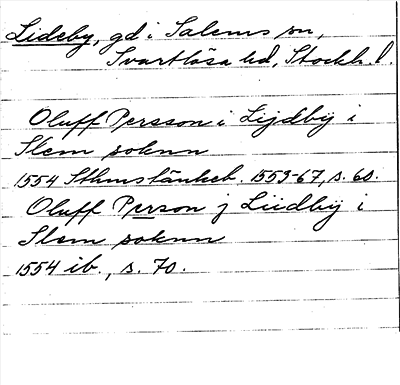 Lideby, gd i Salems sn,
Svartlösa hd, Stockh. l.
Oluff Persson i Lijdbÿ i
Slem soknn
1554 Sthmstänkeb. 1553-67, s. 60.
Oluff Person j Liidbÿ i
Slem soknn
1554 ib., s. 70.